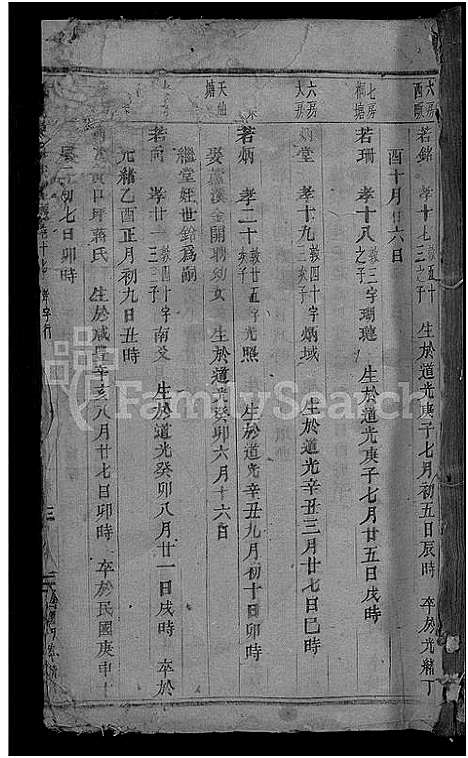 六房
若銘 孝十七 敦五十三之子 生於道光庚子七月初五日辰時 卒於光緒丁
酉十月廿六日
七房 桐塘
若珊 孝十八 敦三之子 字瑚璉 生於道光庚子七月廿五日戌時
六房
炳堂 孝十九 敦四十三來子 字炳域 生於道光辛丑三月廿七日巳時
若炳 孝二十 敦廿五來子 字光照 生於道光辛丑九月初十日卯時
塘
娶蘆溪金開聘幼女 生於道光癸卯六月十六日
繼堂姪世錦為嗣
若向 孝廿一 敦四十三三子 字南爻 生於道光癸卯八月廿一日戌時 卒於
光緒乙酉正月初九日丑時
蔣氏 生於咸豐辛亥八月廿七日卯時 卒於民國庚申十
初七日卯時
FamilySearch